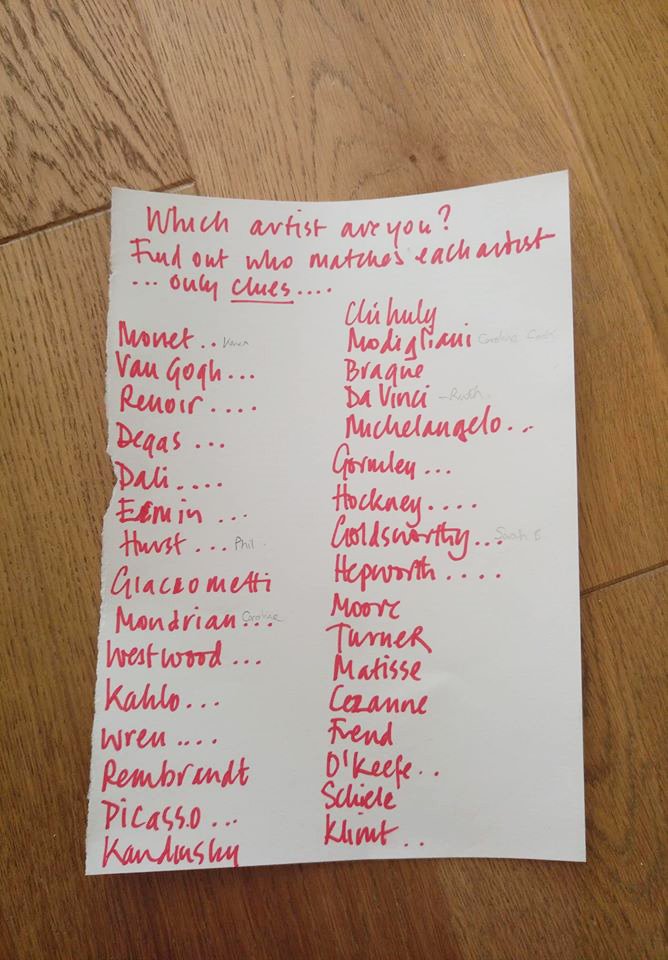 Which artist are you?
Find out who matches each artist
... only clues....
Monet .. Karen
Van Gogh ...
Renoir ....
Degas ...
Dali ....
Emin ...
Hurst ... Phil
Giacrometti
Mondrian ... Caroline
Westwood ...
Kahlo ...
Wren ....
Rembrandt
Picasso ...
Kandinsky
Chihuly
Modigliani Caroline Cook
Braque
Da Vinci - Ruth
Michelangelo ...
Gormley ...
Hockney ....
Goldsworthy ... Sarah B
Hepworth ....
Moore
Turner
Matisse
Cezanne
Freud
O'Keefe ..
Schiele
Klimt ..